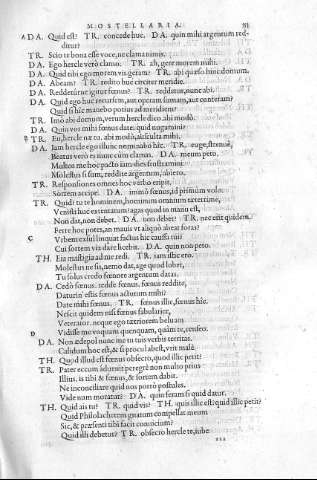 MOSTELLARIA.
A DA. Quid est? TR. concede huc. DA. quin mihi argentum red-
ditur?
TR. Scio te bona esse voce, ne clama nimis.
DA. Ego hercle verò clamo. TR. ah, gere morem mihi.
DA. Quid tibi ego morem vis geram? TR. abi quæso hinc domum.
DA. Abeam? TR. redito huc circiter meridie.
DA. Reddetúrne igitur fœnus? TR. reddetur, nunc abi.
DA. Quid ego huc recursem, aut operam sumam, aut conteram?
Quid si hîc manebo potius ad meridiem?
TR. Imò abi domum, verum hercle dico. abi modò.
DA. Quin vos mihi fœnus date. quid nugamini?
B TR. Eu, hercle næ tu. abi modò, ausculta mihi.
DA. Iam hercle ego illunc nomi nabo hîc. TR. euge, strenuè,
Beatus verò es nunc cùm clamas. DA. meum peto.
Multos me hoc pacto iam dies frustramini.
Molestus si sum, reddite argentum, abiero.
TR. Responsiones omneis hoc verbo eripis.
Sortem accipe. DA. immò fœnus, id primùm volo.
TR. Quid? tu te hominem, hominum omnium teterrime,
Venisti huc extentatum? agas quod in manu est,
Non dat, non debet. DA. non debet? TR. nec est quidem.
Ferre hoc potes, an mauis vt aliquò abeat foras?
C Vrbem exsul linquat factus hîc caussa tui:
Cui sortem vix dare licebit. DA. quin non peto.
TH. Eia mastigia ad me redi. TR. iam istic ero.
Molestus ne sis, nemo dat, age quod lubet,
Tu solus credo fœnore argentum datas.
DA. Cedò fœnus. redde fœnus. fœnus reddite,
Daturin' estis fœnus actutum mihi?
Date mihi fœnus. TR. fœnus illic, fœnus hîc.
Nescit quidem nisi fœnus fabularier,
Veterator. neque ego tætriorem beluam
D Vidisse me vnquam quenquam, quàm te, censeo.
DA. Non ædepol nunc me tu istis verbis territas.
Calidum hoc est, & si procul abest, vrit malè.
TH. Quod illud est fœnus obsecro, quod illic petit?
TR. Pater eccum aduenit peregrè non multò prius
Illius. is tibi & fœnus, & sortem dabit.
Ne inconciliare quid nos porrò postules.
Vide num moratur? DA. quin feram si quid datur.
TH. Quid ais tu? TR. quid vis? TH. quis illic est? quid illic petit?
Quid Philolachetem gnatum compellat meum
Sic, & præsenti tibi facit conuicium?
Quid illi debetur? TR. obsecro hercle te, iube